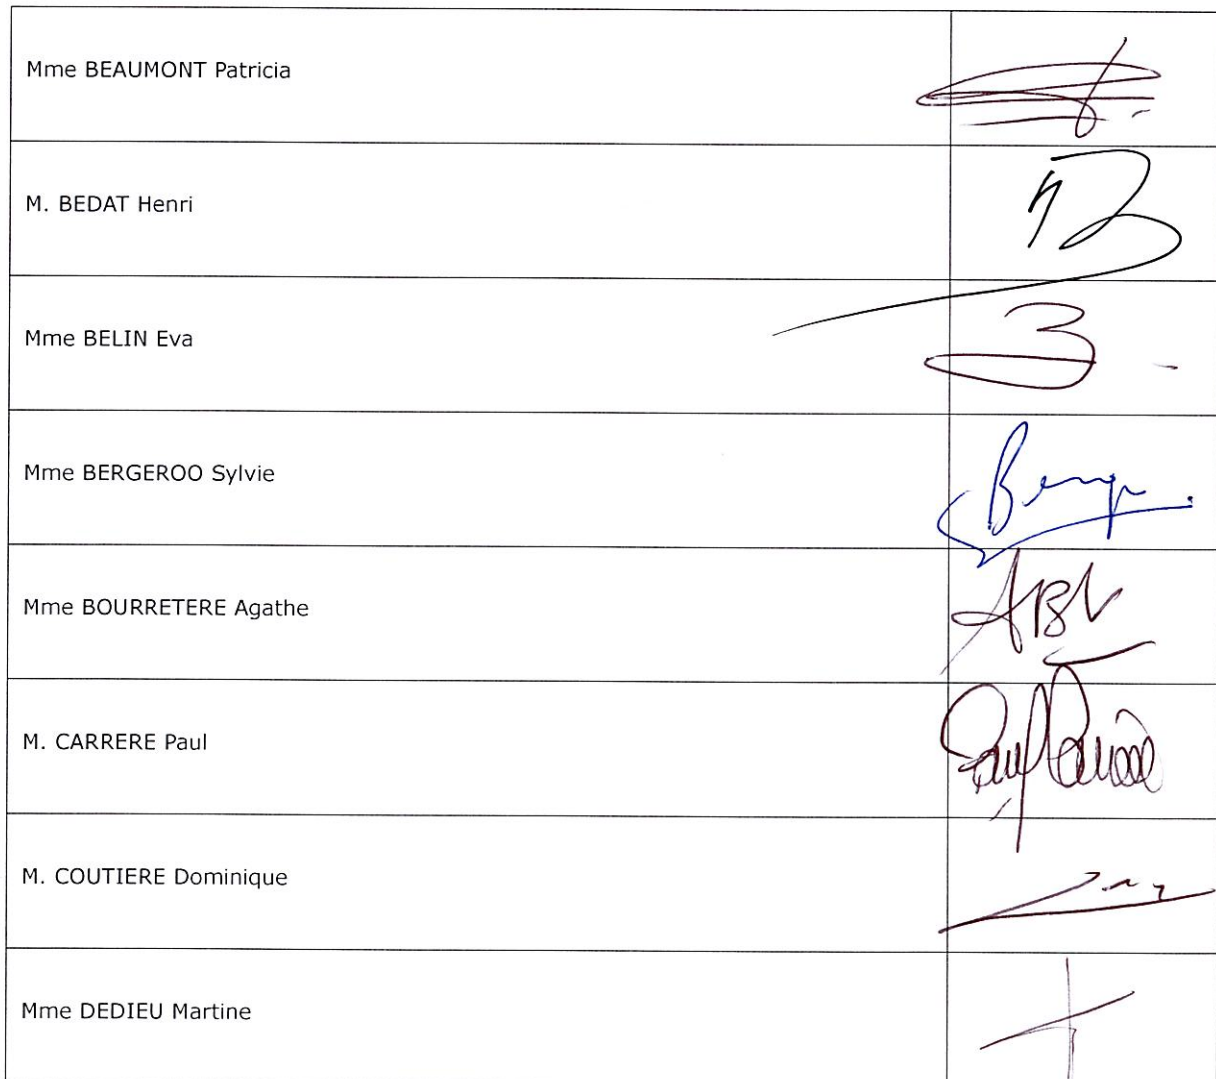 Mme BEAUMONT Patricia
M. BEDAT Henri
Mme BELIN Eva
Mme BERGEROO Sylvie
Mme BOURRETERE Agathe
M. CARRERE Paul
M. COUTIERE Dominique
Mme DEDIEU Martine